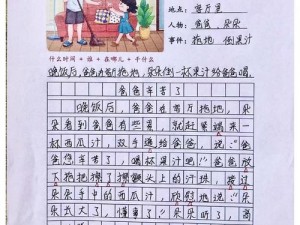 地点：客厅里
人物：爸爸、朵朵
事件：拖地 倒果汁
什么时间＋谁＋在哪儿＋干什么
晚饭后，爸爸在客厅拖地，朵朵倒一杯果汁给爸爸喝。
爸爸辛苦了
晚饭后，爸爸在客厅拖地，朵
朵看到爸爸有些累，就赶紧端来一
杯西瓜汁，双手递给爸爸，说：“爸
爸您辛苦了，喝杯果汁吧！”爸爸放
下拖把擦了擦额头上的汗珠，接过
朵朵手中的西瓜汁，欣慰地说：“朵
朵长大了，懂事了！”朵朵听了，高